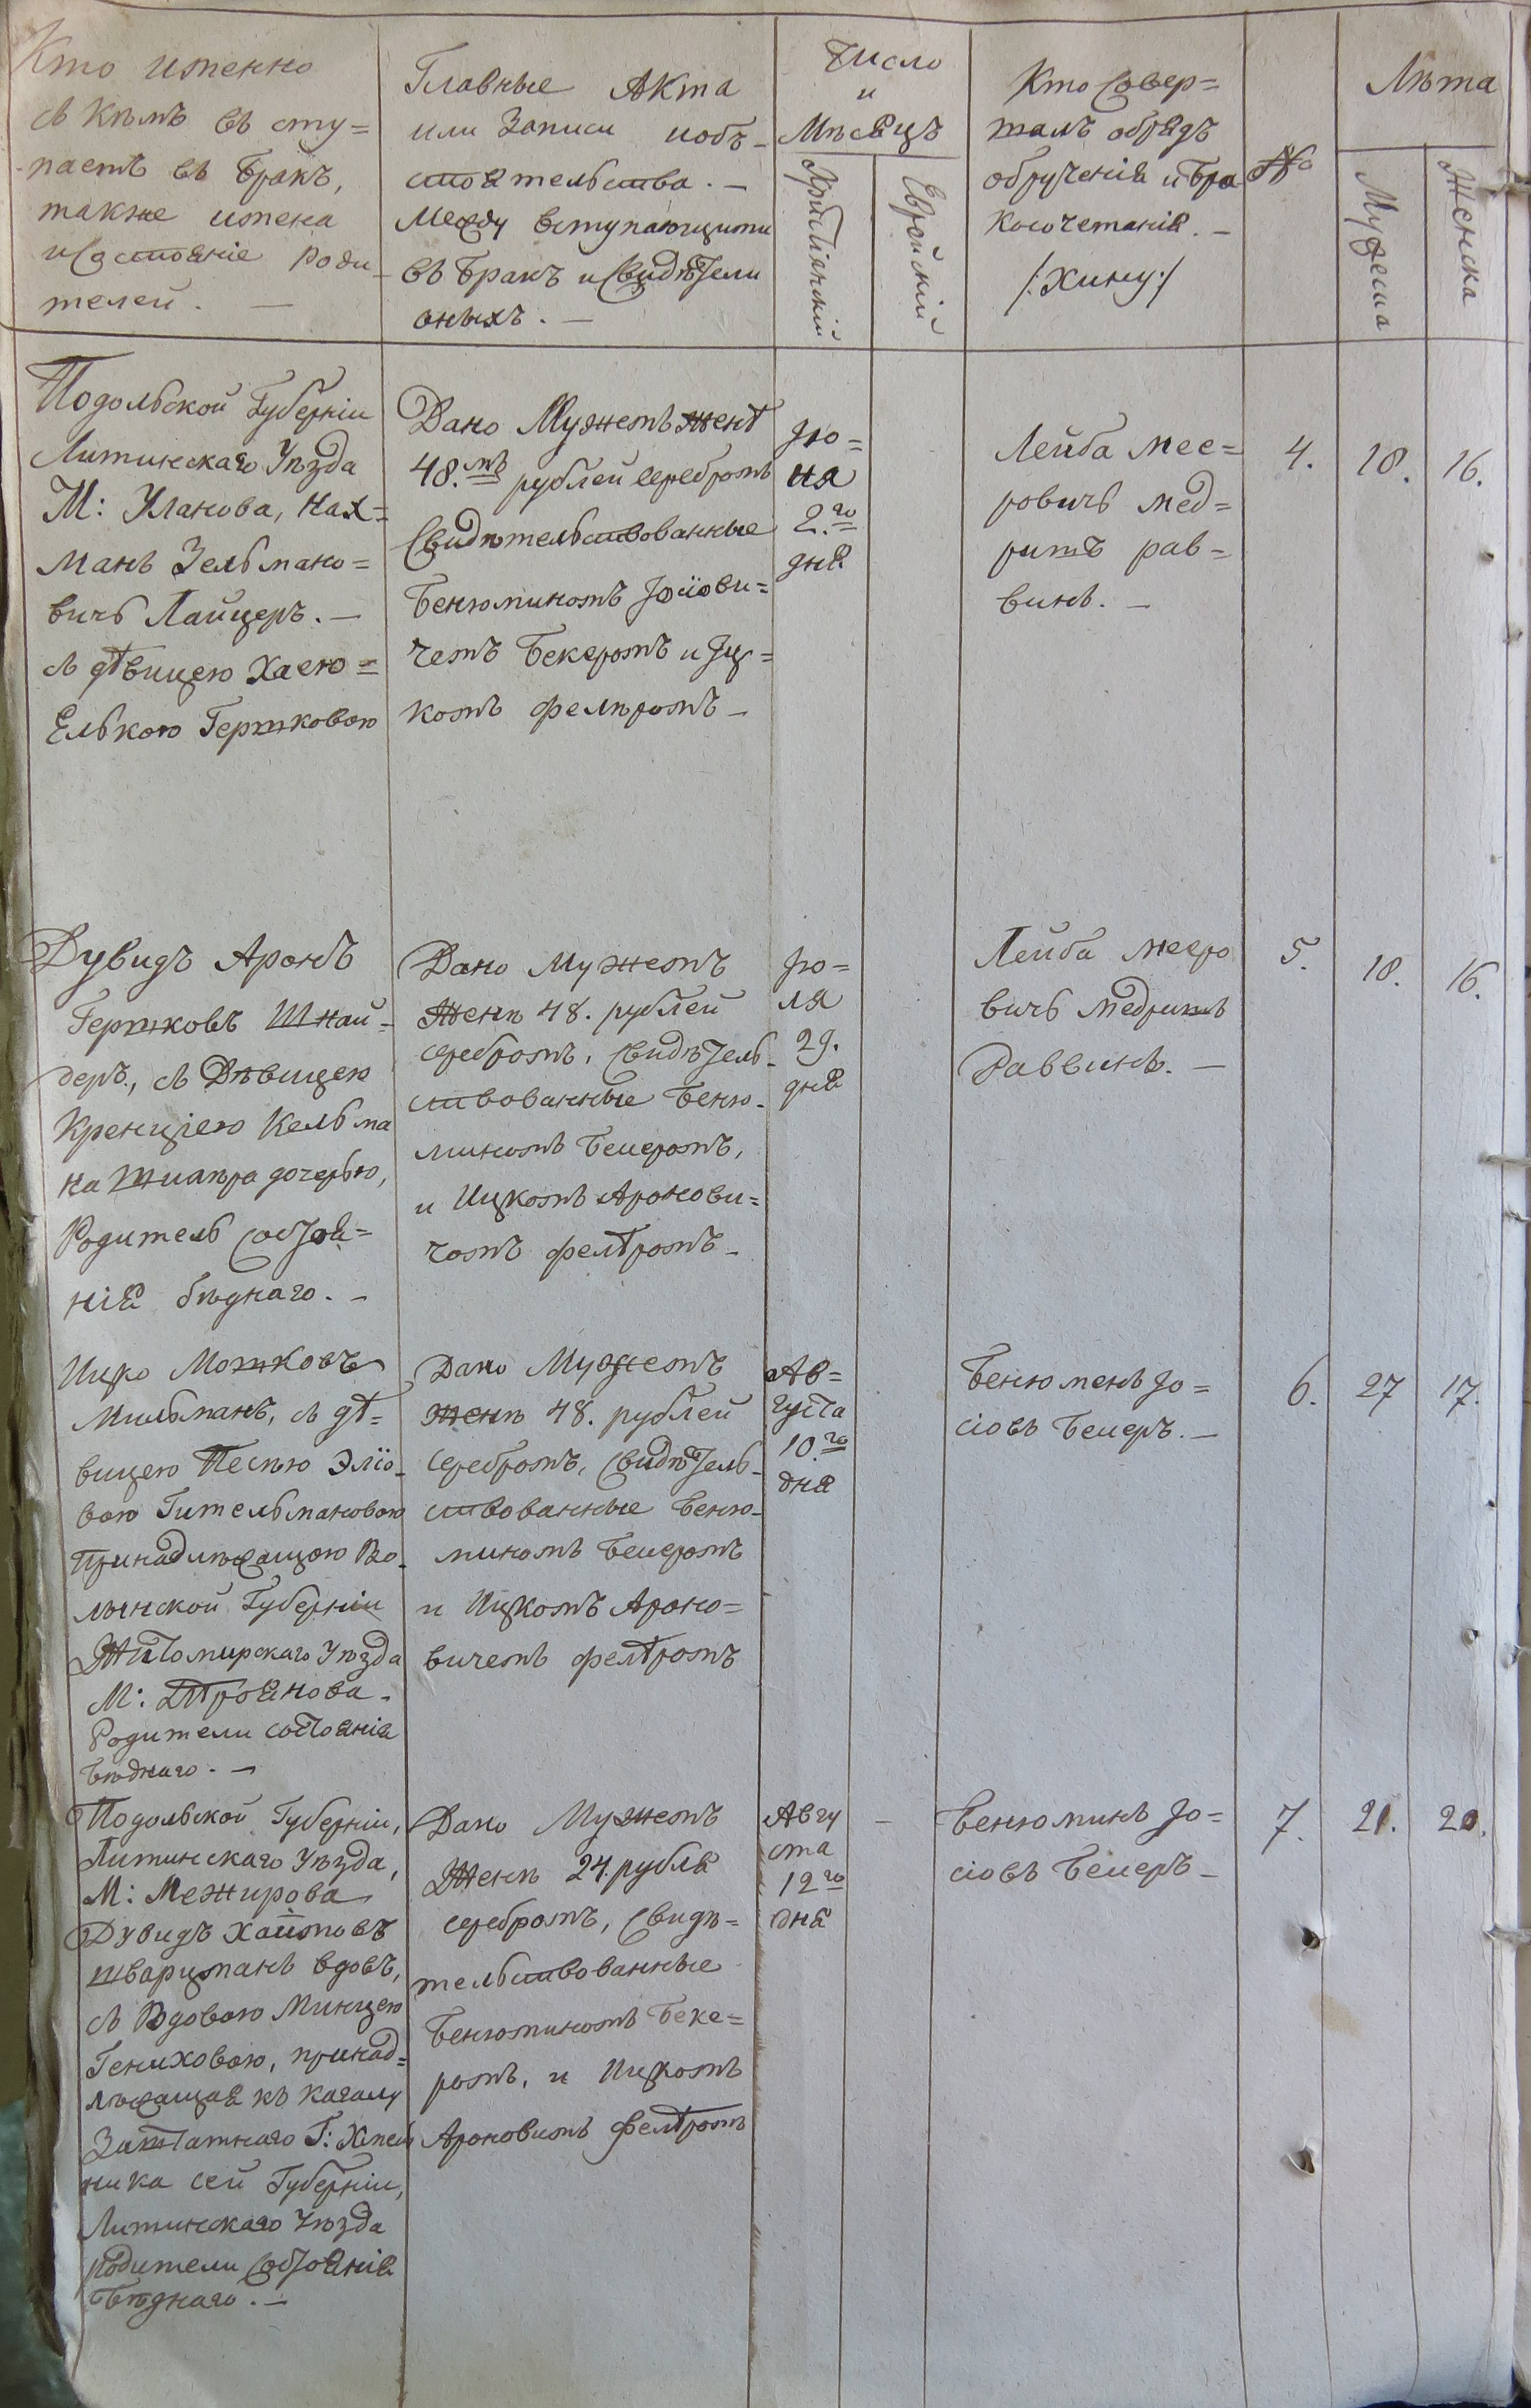 Кто именно
съ Кѣмъ въ сту=
паетъ въ Бракъ,
также имена
и Состояніе Роди
телей. —
Главные Акта
или Записи иобъ-
стоятельства. —
Между вступающими
въ Бракъ и Свидѣтели
оныхъ. —
Число
и
Мѣсяцъ
Христіянскій
Еврейскій
Кто Совер=
шалъ обрядъ
обрученія и Бра
косочетанія. —
/:Хину:/
№
Лѣта
Мужеска
Женска
Подольской Губерніи
Литинскаго Уѣзда
М: Уланова, Нах=
манъ Зельмано=
вичь Лайцеръ. —
съ дѣвицею Хаею=
Елькою Гершковою
Дано Мужемъ женѣ
48.мъ рублей серебромъ
Свидѣтельствованные
Бенюминомъ Іосіови=
чемъ Бекеромъ и Іц=
комъ фелѣромъ —
Ію=
ня
2.го
дня
Лейба Мее=
ровичь Мед=
ришъ рав=
винъ. —
4.
18.
16.
Дувидъ Аронъ
Гершковъ Шнай-
деръ, съ Дѣвицею
Кренціею Кельма
на дочерью,
Родитель состоя=
нія бѣднаго. —
Дано Мужемъ
Женѣ 48. рублей
серебромъ, Свидѣтель-
ствованные Беню-
миномъ Бекеромъ,
и Ицкомъ Аронови=
чомъ фелтромъ —
Ію=
ля
29.
дня
Лейба Мееро
вичь Медришъ
Раввинъ. —
5.
18.
16.
Ицко Мошковъ
Мильманъ, съ дѣ=
вицею Песею Эліо-
вою Гительмановою
Принадлежащою Во-
лынской Губерніи
Житомирскаго Уѣзда
М: Троянова -
Родители состоянія
бѣднаго. —
Дано Мужемъ
женѣ 48. рублей
серебромъ, Свидѣтель-
ствованные Беню-
миномъ Бекеромъ
и Ицкомъ Ароно=
вичемъ фелтромъ
Ав=
густа
10.го
дня
Бенюменъ Іо=
сіовъ Бекеръ. —
6.
27
17.
Подольской Губерніи,
Литинскаго Уѣзда,
М: Межирова
Дувидъ Хаимовъ
шварцманъ вдовъ,
съ Вдовою Минцею
Гениховою, принад=
лѣжащая къ кагалу
Заштатнаго Г: Хмель
ника сей Губерніи,
Литинскаго Уѣзда
родители Состоянія
бѣднаго. —
Дано Мужемъ
Женѣ 24. рубля
серебромъ, Свидѣ=
тельствованные
Бенюминомъ Беке=
ромъ, и Ицкомъ
Ароновимъ фелтромъ
Авгу
ста
12го
дня
—
Бенюминъ Іо=
сіовъ Бекеръ —
7.
21.
20.